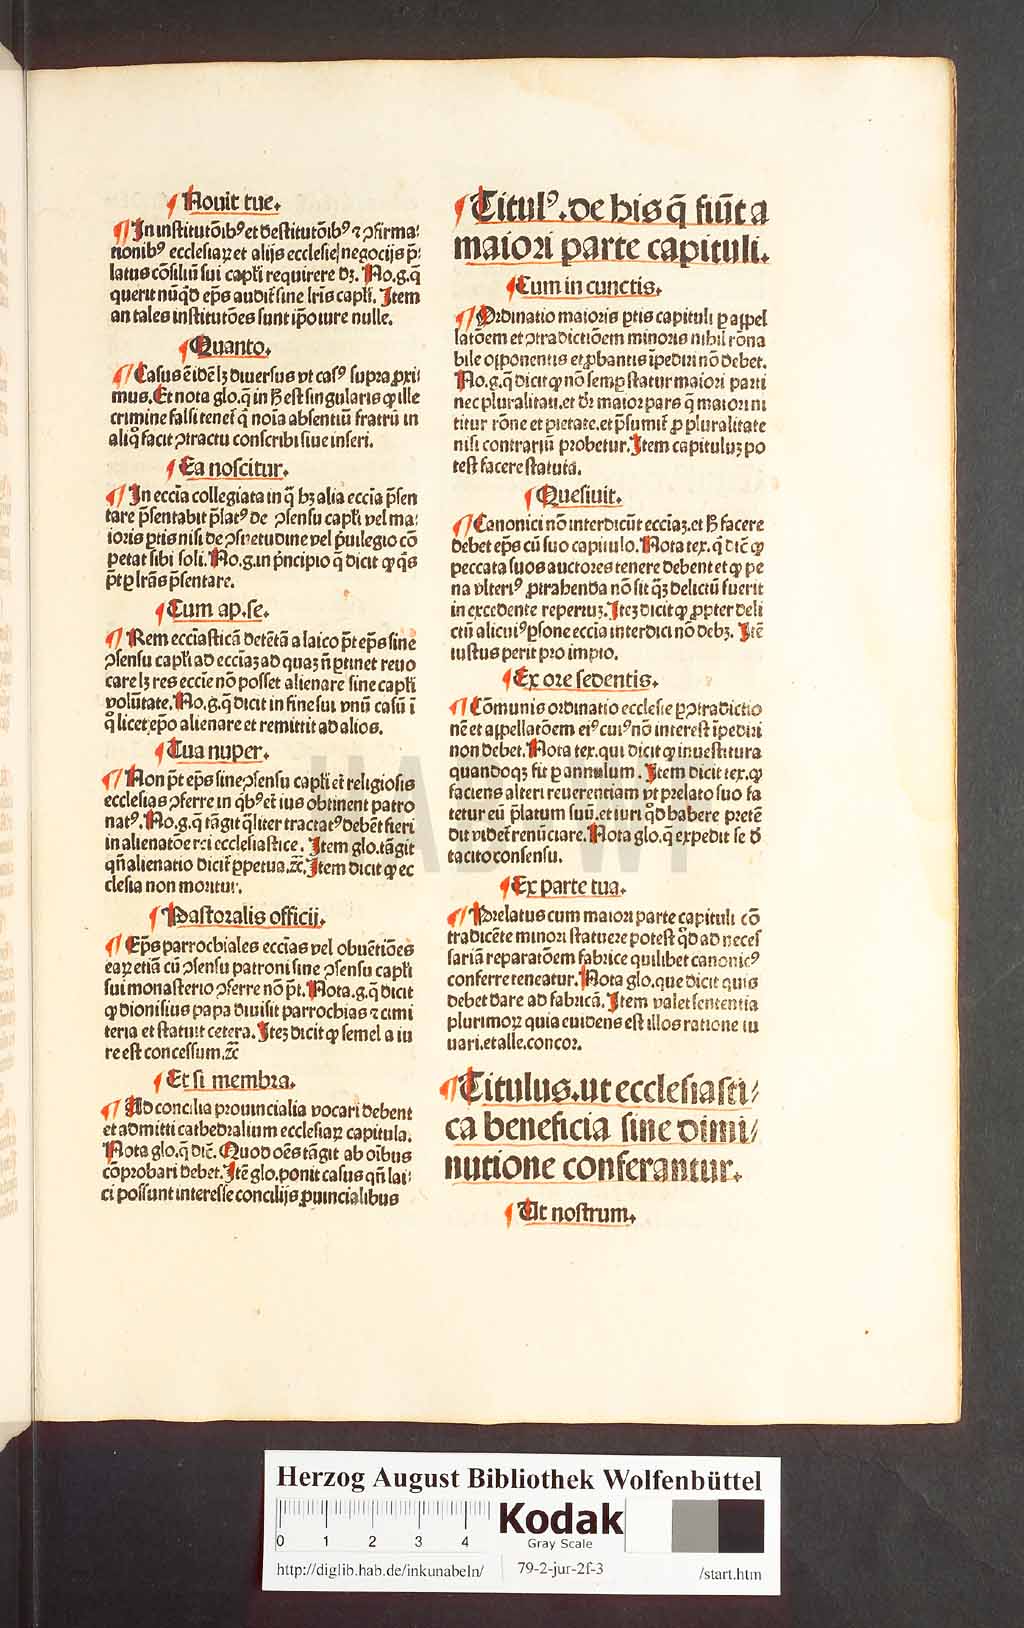 ¶ Nouit tue.
¶ In institutōibꝰ et destitutōibꝰ ⁊ ꝯfirma⸗
tionibꝰ ecclesiaꝝ et alijs ecclesie negocijs p̄⸗
latus cōsiliū sui capłi requirere dꝫ. No.g.q̄
querit nūqͥd ep̄s audit̄ sine lr̄is capłi. Item
an tales institutōes sunt ip̄o iure nulle.
¶ Quanto.
¶ Casus ē idē lꝫ diuersus vt casꝰ supra ꝓxi⸗
mus. Et nota glo.q̄ in h̄ est singularis ꝙ ille
crimine falsi tenet̄ qͥ noīa absentiū fratrū in
aliqͦ facit ꝯtractu conscribi siue inseri.
¶ Ea noscitur.
¶ In eccīa collegiata in q̄ hꝫ alia eccīa p̄sen
tare p̄sentabit p̄latꝰ de ꝯsensu capłi vel ma⸗
ioris ꝑtis nisi de ꝯsuetudine vel p̄uilegio cō
petat sibi soli. No.g.in pͥncipio q̄ dicit ꝙ qͥs
p̄t ꝑ lr̄as p̄sentare.
¶ Cum ap.se.
¶ Rem eccīasticā detētā a laico p̄t ep̄s sine
ꝯsensu capłi ad eccīaꝫ ad quaꝫ n̄ ꝑtinet reuo
care lꝫ res eccīe nō posset alienare sine capłi
volūtate. No.g.q̄ dicit in fine sui vnū casū ī
qͦ licet ep̄o alienare et remittit ad alios.
¶ Tua nuper.
¶ Non p̄t ep̄s sine ꝯsensu capłi et̄ religiosis
ecclesias ꝯferre in qͥbꝰ et̄ ius obtinent patro
natꝰ. No.g.q̄ tāgit qͣliter tractatꝰ debēt fieri
in alienatōe rei ecclesiastice. Item glo.tāgit
qn̄ alienatio dicit̄ ꝑpetua.⁊c̄. Item dicit ꝙ ec
clesia non moritur.
¶ Pastoralis officij.
¶ Ep̄s parrochiales eccīas vel obuētiōes
eaꝝ etiā cū ꝯsensu patroni sine ꝯsensu capłi
sui monasterio ꝯferre nō p̄t. Nota.g.q̄ dicit
ꝙ dionisius papa diuisit parrochias ⁊ cimi
teria et statuit cetera. Iteꝫ dicit ꝙ semel a iu
re est concessum.⁊c̄
¶ Et si membra.
¶ Ad concilia prouincialia vocari debent
et admitti cathedralium ecclesiaꝝ capitula.
Nota glo.q̄ dic̄. Quod oēs tāgit ab oībus
cōprobari debet. Itē glo.ponit casus qn̄ lai⸗
ci possunt interesse concilijs ꝓuincialibus
¶ Titulꝰ.de his q̄ fiūt a
maiori parte capituli.
¶ Cum in cunctis.
¶ Ordinatio maioris ꝑtis capituli ꝑ appel
latōem et ꝯtradictiōem minoris nihil rōna
bile opponentis et ꝓbantis īpediri nō debet.
No.g.q̄ dicit ꝙ nō semꝑ statur maiori parti
nec pluralitati.et dr̄ maior pars q̄ maiori ni
titur rōne et pietate.et p̄sumit̄ ꝓ pluralitate
nisi contrariū probetur. Item capituluꝫ po
test facere statuta.
¶ Quesiuit.
¶ Canonici nō interdicūt eccīaꝫ.et h̄ facere
debet ep̄s cū suo capitulo. Nota tex.q̄ dic̄ ꝙ
peccata suos auctores tenere debent et ꝙ pe
na vlteriꝰ ꝓtrahenda nō sit qͣꝫ delictū fuerit
in excedente repertuꝫ. Iteꝫ dicit ꝙ ꝓpter deli
ctū alicuiꝰ ꝑsone eccīa interdici nō debꝫ. Itē
iustus perit pro impio.
¶ Ex ore sedentis.
¶ Cōmunis ordinatio ecclesie ꝑ ꝯtradictio
nē et appellatōem eiꝰ cuiꝰ nō interest īpediri
non debet. Nota tex.qui dicit ꝙ inuestitura
quandoqꝫ fit ꝑ annulum. Item dicit tex.ꝙ
faciens alteri reuerentiam vt prelato suo fa
tetur eū p̄latum suū.et iuri qͦd habere pretē
dit videt̄ renūciare. Nota glo.q̄ expedit se d̄
tacito consensu.
¶ Ex parte tua.
¶ Prelatus cum maiori parte capituli cō
tradicēte minori statuere potest qͦd ad neces
sariā reparatōem fabrice quilibet canonicꝰ
conferre teneatur. Nota glo.que dicit quis
debet dare ad fabricā. Item valet sententia
plurimoꝝ quia euidens est illos ratione iu
uari.et alle.concor.
¶ Titulus.ut ecclesiasti⸗
ca beneficia sine dimi⸗
nutione conferantur.
¶ Ut nostrum.
HAB WF
Herzog August Bibliothek Wolfenbüttel
0 1 2 3 4
Kodak
Gray Scale
http://diglib.hab.de/inkunabeln/ 79-2-jur-2f-3 /start.htm